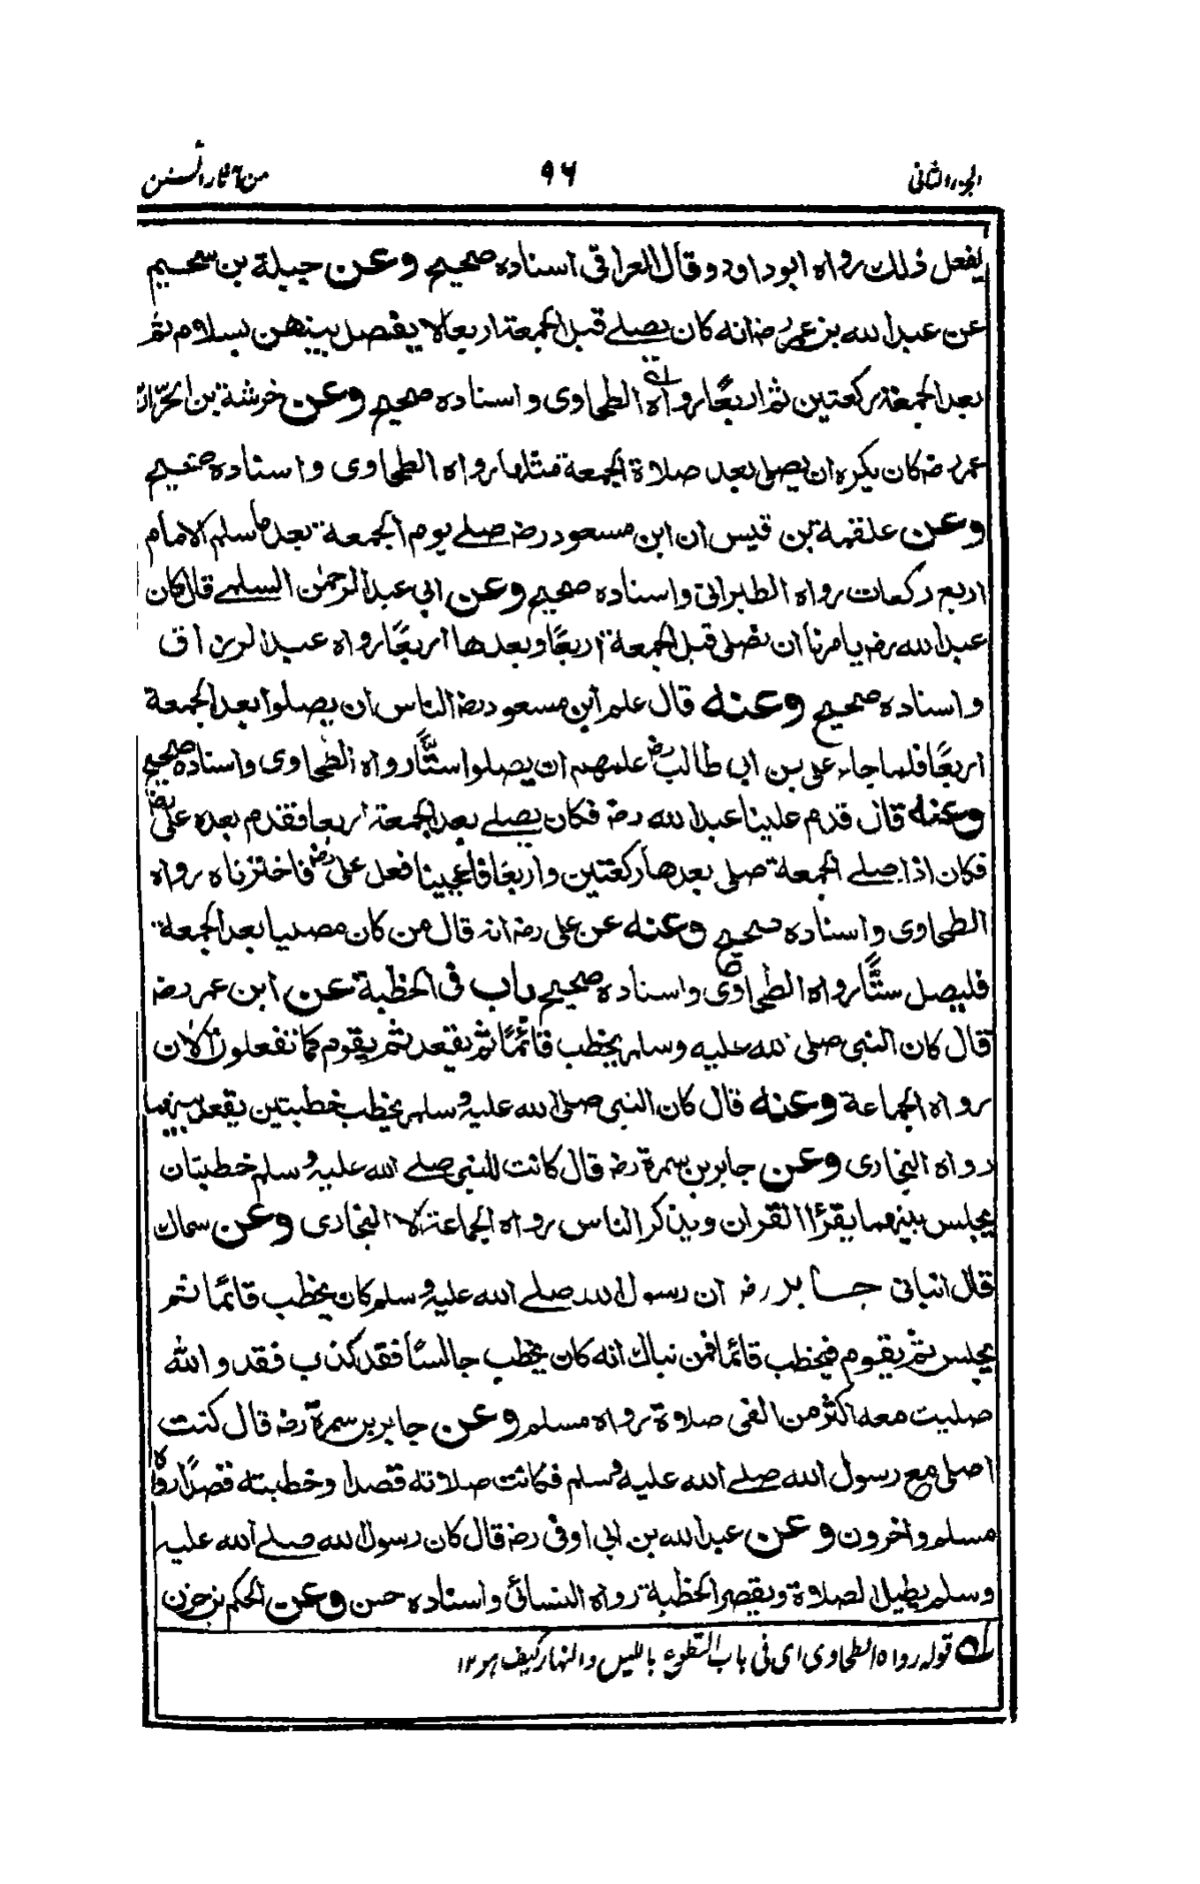 الجزء الثانی ٩٦ من آثار السنن
يفعل ذلك رواه ابو داود وقال العراقى اسناده صحيح وعن جبلة بن سحيم
عن عبد الله بن عمر رض انه كان يصلے قبل الجمعة اربعا لا يفصل بينهن بسلام ثم
بعد الجمعة ركعتين ثم اربعًا رواه الطحاوى واسناده صحيح وعن خرشة بن الحرّ ان
عمر رض كان يكره ان يصلى بعد صلاة الجمعة مثلها رواه الطحاوى واسناده صحيح
وعن علقمة بن قيس ان ابن مسعود رض صلے يوم الجمعة بعد ما سلم الامام
اربع ركعات رواه الطبرانى واسناده صحيح وعن ابى عبد الرحمٰن السلمے قال كان
عبد الله رض يامرنا ان نصلى قبل الجمعة اربعًا وبعدها اربعًا رواه عبد الرزاق
واسناده صحيح وعنه قال علم ابن مسعود رض الناس ان يصلوا بعد الجمعة
اربعًا فلما جاء على بن ابى طالب رض علمهم ان يصلوا ستًّا رواه الطحاوى واسناده صحيح
وعنه قال قدم علينا عبد الله رض فكان يصلے بعد الجمعة اربعا فقدم بعده على رض
فكان اذا صلے الجمعة صلى بعدها ركعتين واربعًا فاعجبنا فعل على رض فاخترناه رواه
الطحاوى واسناده صحيح وعنه عن على رض انه قال من كان مصليا بعد الجمعة
فليصل ستًّا رواه الطحاوى واسناده صحيح باب فى الخطبة عن ابن عمر رض
قال كان النبى صلى الله عليه وسلم يخطب قائمًا ثم يقعد ثم يقوم كما تفعلون الاٰن
رواه الجماعة وعنه قال كان النبى صلى الله عليه وسلم يخطب خطبتين يقعد بينهما
رواه البخارى وعن جابر بن سمرة رض قال كانت للنبى صلے الله عليه وسلم خطبتان
يجلس بينهما يقرأ القران ويذكر الناس رواه الجماعة الا البخارى وعن سماك
قال انبانى جابر رض ان رسول الله صلے الله عليه وسلم كان يخطب قائمًا ثم
يجلس ثم يقوم فيخطب قائما فمن نباك انه كان يخطب جالسًا فقد كذب فقد والله
صليت معه اكثر من الفى صلاة رواه مسلم وعن جابر بن سمرة رض قال كنت
اصلى مع رسول الله صلے الله عليه وسلم فكانت صلاته قصدا وخطبته قصدًا رواه
مسلم واخرون وعن عبد الله بن ابى اوفى رض قال كان رسول الله صلے الله عليه
وسلم يطيل الصلاة ويقصر الخطبة رواه النسائى واسناده حسن وعن الحكم بن حزن
قوله رواه الطحاوى اى فى باب التطوع بالليل والنهار كيف هو ١٢